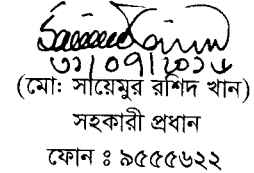 ৩১/০৭/২০১৮
(মোঃ সায়েমুর রশিদ খান)
সহকারী প্রধান
ফোন ঃ ৯৫৫৫৬২২